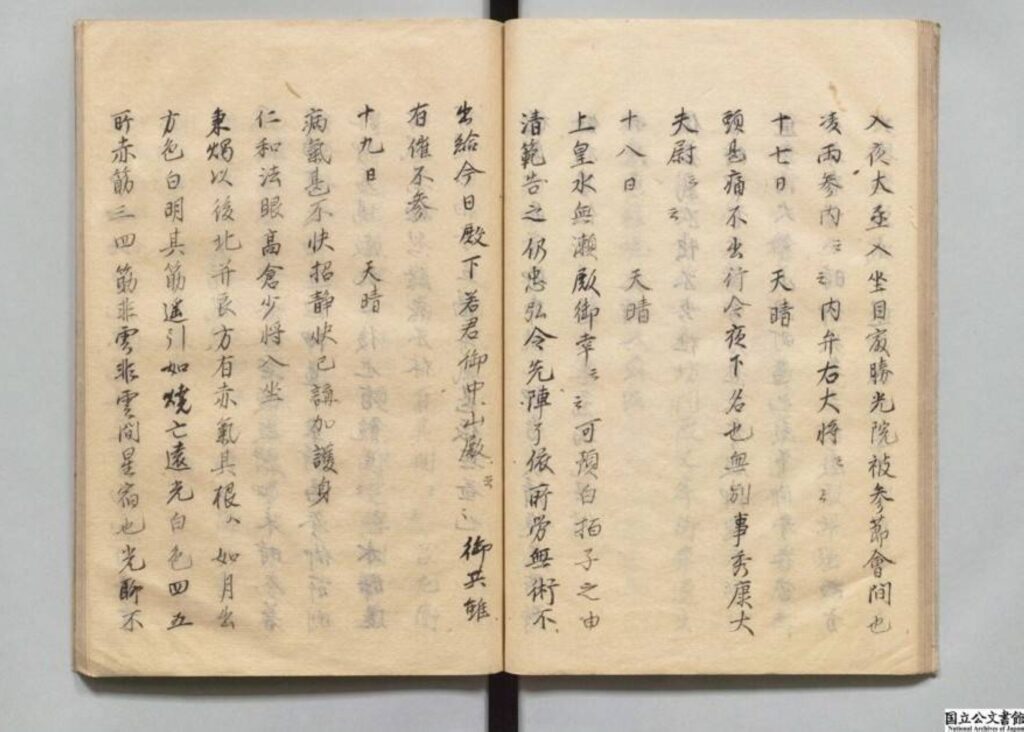 入夜大臣入坐自最勝光院被参節會間也
凌雨参内云々内弁右大将云々
十七日 天晴
頭甚痛不出行今夜下名也無別事秀康大
夫尉云々
十八日 天晴
上皇水無瀬殿御幸云々可預白拍子之由
清範告之仍忠弘令先陣了依所労無術不
出給今日殿下若君御中山殿云々御共雖
有催不参
十九日 天晴
病氣甚不快招静快已講加護身
仁和法眼高倉少将入坐
秉燭以後北并艮方有赤氣其根ハ如月出
方色白明其筋遥引如焼亡遠光白色四五
所赤筋三四筋非雲非雲間星宿也光聊不
国立公文書館
National Archives of Japan